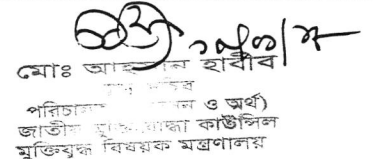 মোঃ আহসান হাবীব
উপ সচিব
পরিচালক ও অর্থ)
জাতীয় মুক্তিযোদ্ধা কাউন্সিল
মুক্তিযুদ্ধ বিষয়ক মন্ত্রণালয়